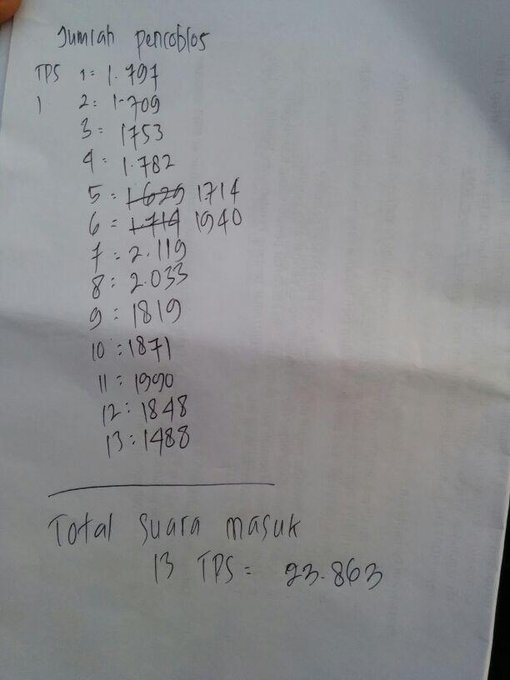 Jumlah pencoblos
TPS 1 = 1.797
1 2 = 1.709
3 = 1753
4 = 1.782
5 = 1.629 1714
6 = 1.714 1940
7 = 2.119
8 = 2.033
9 = 1819
10 = 1871
11 = 1990
12 = 1848
13 = 1488
Total suara masuk
13 TPS = 23.863